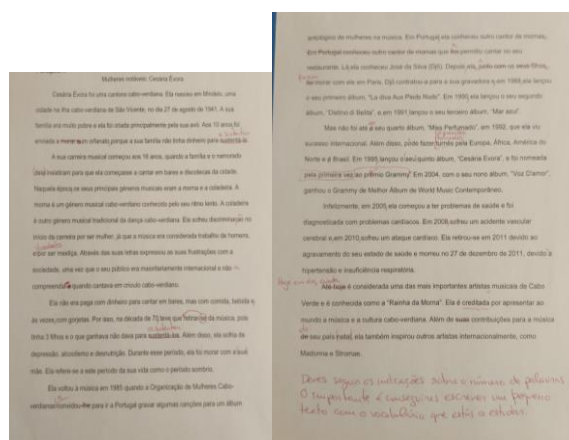 Mulheres notáveis: Cesária Évora
Cesária Évora foi uma cantora cabo-verdiana. Ela nasceu em Mindelo, uma
cidade na ilha cabo-verdiana de São Vicente, no dia 27 de agosto de 1941. A sua
família era muito pobre e ela foi criada principalmente pela sua avó. Aos 10 anos, foi
enviada a morar num orfanato porque a sua família não tinha dinheiro para sustentá-la.
A sua carreira musical começou aos 16 anos, quando a família e o namorado
insistiram para que ela começasse a cantar em bares e discotecas da cidade.
Naquela época os seus principais géneros musicais eram a morna e a coladeira. A
morna é um género musical cabo-verdiano conhecido pelo seu ritmo lento. A coladeira
é outro género musical tradicional da dança cabo-verdiana. Ela sofreu discriminação no
início da carreira por ser mulher, já que a música era considerada trabalho de homens,
e por ser mestiça. Através das suas letras expressou as suas frustrações com a
sociedade, uma vez que o seu público era maioritariamente internacional e não
compreendia quando cantava em crioulo cabo-verdiano.
Ela não era paga com dinheiro para cantar em bares, mas com comida, bebida e
às vezes, com gorjetas. Por isso, na década de 70 teve que da música, pois
tinha 3 filhos e o que ganhava não dava para sustentá-los. Além disso, ela sofria de
depressão, alcoolismo e desnutrição. Durante esse período, ela foi morar com a sua
mãe. Ela refere-se a este período da sua vida como o período sombrio.
Ela voltou à música em 1985 quando a Organização de Mulheres Cabo-
verdianas convidou para ir a Portugal gravar algumas canções para um álbum
antológico de mulheres na música. Em Portugal, ela conheceu outro cantor de mornas,
Em Portugal conheceu outro cantor de mornas que lhe permitiu cantar no seu
restaurante. Lá ela conheceu José da Silva (Djô). Depois, ela, junto com os seus filhos,
morar com ele em Paris. Djô contratou-a para a sua gravadora e, em 1988, ela lançou
o seu primeiro álbum, "La diva Aux Pieds Nuds". Em 1990, ela lançou o seu segundo
álbum, "Distino di Belita", e em 1991, lançou o seu terceiro álbum, "Mar azul".
Mas não foi até a seu quarto álbum, "Miss Perfumado", em 1992, que ela viu
sucesso internacional. Além disso, pôde fazer turnês pela Europa, África, América do
Norte e à Brasil. Em 1995, lançou o seu quinto álbum, "Cesária Évora", e foi nomeada
pela primeira vez ao prémio Grammy. Em 2004, com o seu nono álbum, "Voz D'amor",
ganhou o Grammy de Melhor Álbum de World Music Contemporâneo.
Infelizmente, em 2005, ela começou a ter problemas de saúde e foi
diagnosticada com problemas cardíacos. Em 2008, sofreu um acidente vascular
cerebral e, em 2010, sofreu um ataque cardíaco. Ela retirou-se em 2011 devido ao
agravamento do seu estado de saúde e morreu no 27 de dezembro de 2011, devido a
hipertensão e insuficiência respiratória.
Até hoje é considerada uma das mais importantes artistas musicais de Cabo
Verde e é conhecida como a "Rainha da Morna". Ela é creditada por apresentar ao
mundo a música e a cultura cabo-verdiana. Além de suas contribuições para a música
de seu país natal, ela também inspirou outros artistas internacionalmente, como
Madonna e Stromae.
Deves seguir as indicações sobre o número de palavras.
O importante é conseguires escrever um pequeno
texto com o vocabulário que estás a estudar.